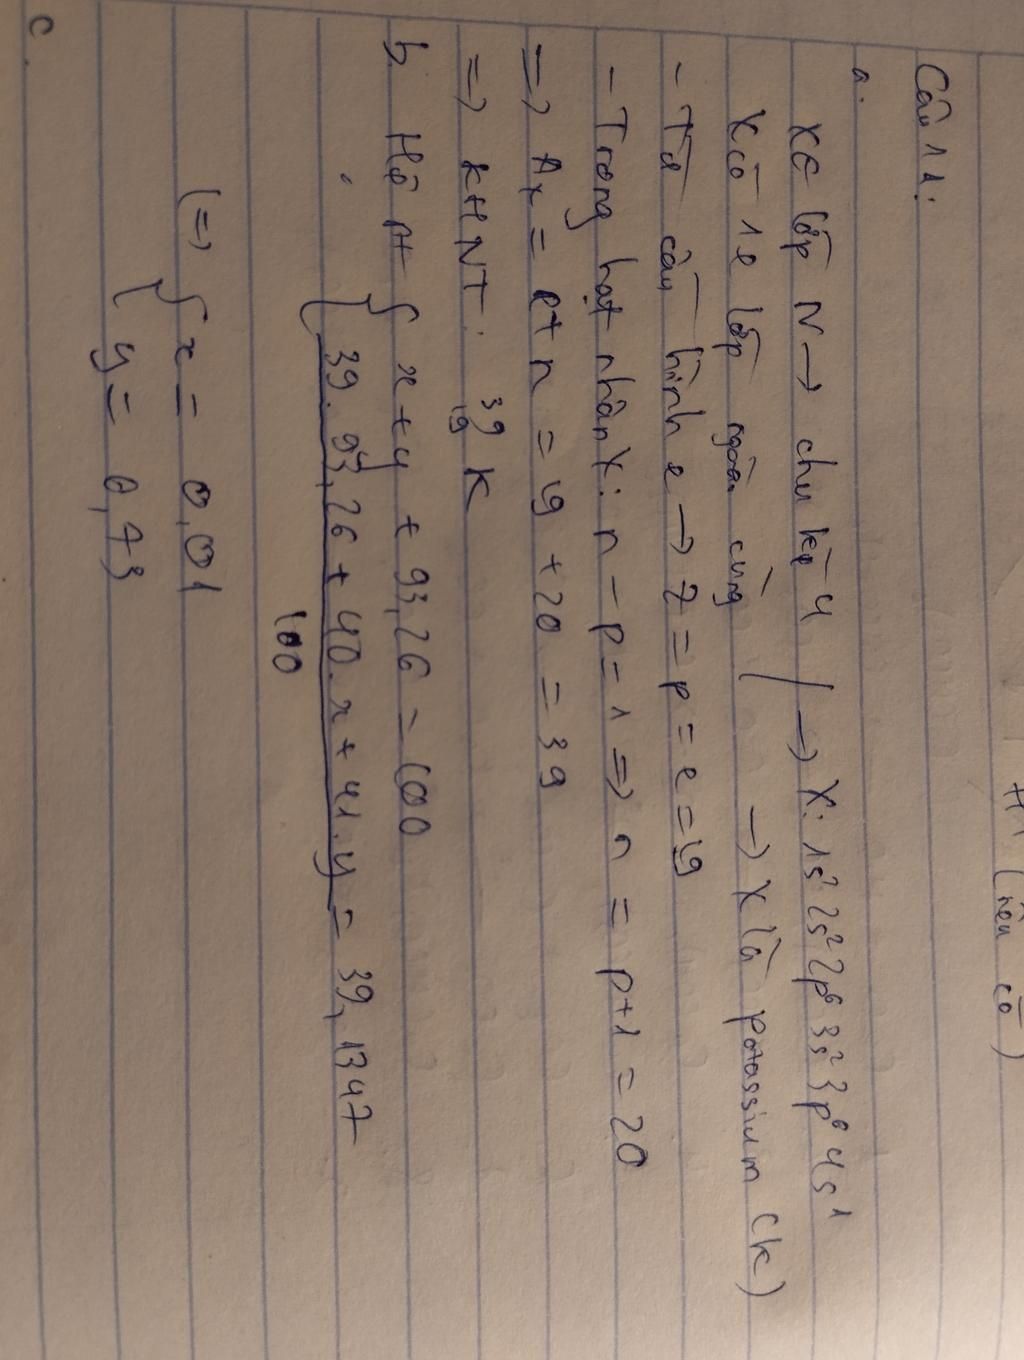 H⁺ (nếu có)
Câu 11:
a.
X ∈ lớp N → chu kỳ 4 / → X: 1s² 2s² 2p⁶ 3s² 3p⁶ 4s¹
X có 1e lớp ngoài cùng → X là potassium (K)
- Từ cấu hình e → Z = p = e = 19
- Trong hạt nhân X: n - p = 1 => n = p+1 = 20
=> Aₓ = p + n = 19 + 20 = 39
=> KHNT: ³⁹₁₉K
b, Hệ pt { x + y + 93,26 = 100
{ 39. 93,26 + 40. x + 41. y = 39,1347
100
(=> { x = 0,01
{ y = 6,73
c